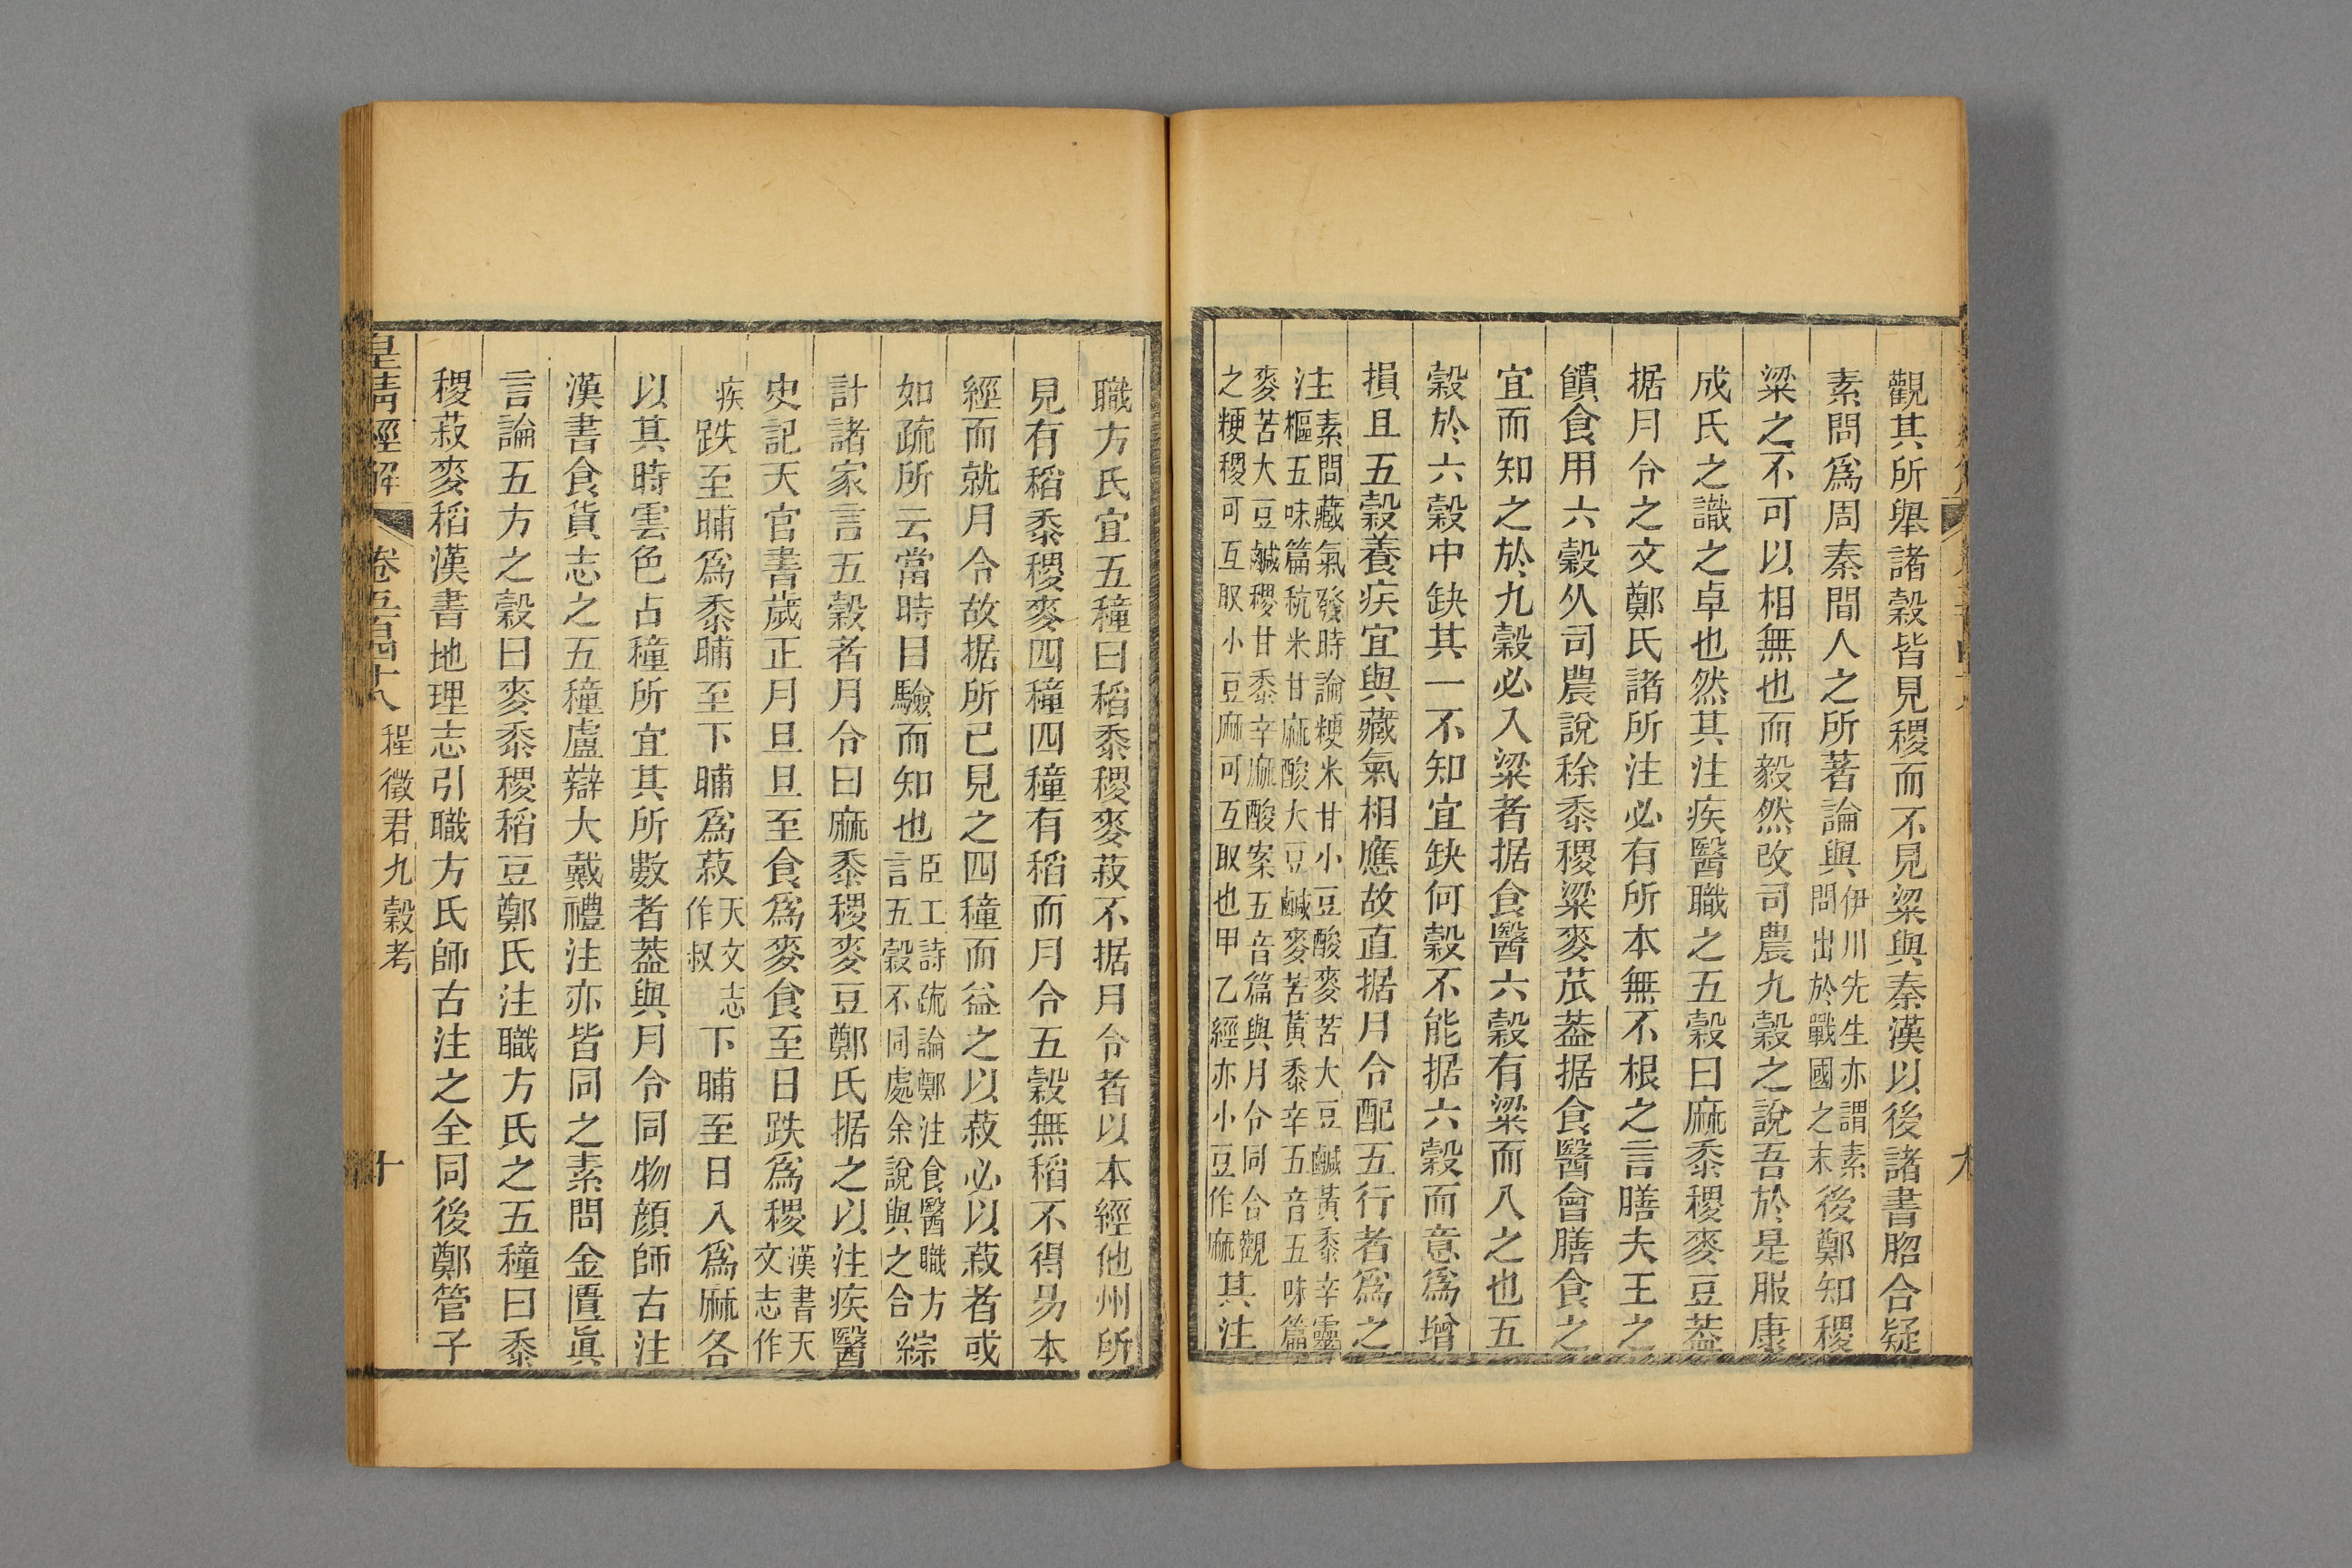 觀其所舉諸穀皆見稷而不見粱與秦漢以後諸書脗合疑
素問爲周秦間人之所著論與伊川先生亦謂素問出於戰國之末後鄭知稷
粱之不可以相無也而毅然改司農九穀之說吾於是服康
成氏之識之卓也然其注疾醫職之五穀曰麻黍稷麥豆葢
据月令之文鄭氏諸所注必有所本無不根之言膳夫王之
饋食用六穀仏司農說稌黍稷粱麥苽葢据食醫會膳食之
宜而知之於九穀必入粱者据食醫六穀有粱而入之也五
穀於六穀中缺其一不知宜缺何穀不能据六穀而意爲增
損且五穀養疾宜與藏氣相應故直据月令配五行者爲之
注素問藏氣發時論粳米甘小豆酸麥苦大豆鹹黃黍辛靈樞五味篇秔米甘麻酸大豆鹹麥苦黃黍辛五音五味篇
麥苦大豆鹹稷甘黍辛麻酸案五音篇與月令同合觀之粳稷可互取小豆麻可互取也甲乙經亦小豆作麻其注
職方氏宜五穜曰稻黍稷麥菽不据月令者以本經他州所
見有稻黍稷麥四穜四穜有稻而月令五穀無稻不得易本
經而就月令故据所已見之四穜而益之以菽必以菽者或
如疏所云當時目驗而知也臣工詩疏論鄭注食醫職方言五穀不同處余說與之合綜
計諸家言五穀者月令曰麻黍稷麥豆鄭氏据之以注疾醫
史記天官書歲正月旦旦至食爲麥食至日跌爲稷漢書天文志作
疾跌至晡爲黍晡至下晡爲菽天文志作叔下晡至日入爲麻各
以其時雲色占穜所宜其所數者葢與月令同物顏師古注
漢書食貨志之五穜盧辯大戴禮注亦皆同之素問金匱眞
言論五方之穀曰麥黍稷稻豆鄭氏注職方氏之五穜曰黍
稷菽麥稻漢書地理志引職方氏師古注之全同後鄭管子
皇清經解 卷五百四十八 程徵君九穀考 十